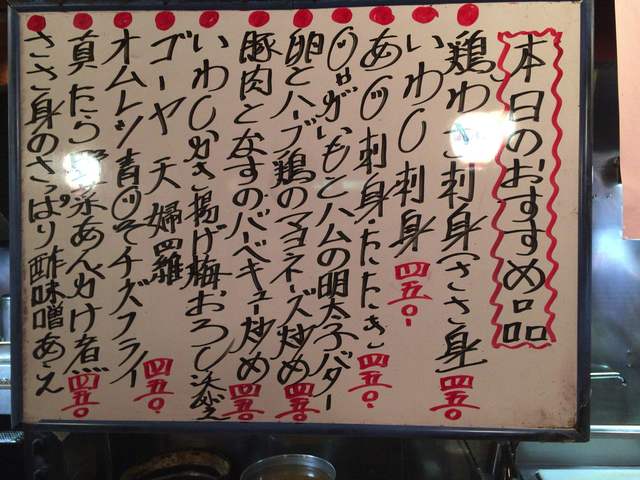 本日のおすすめ品
鶏わさ刺身(ささ身) 四五〇
いわし刺身 四五〇.
あじ刺身・たたき 四五〇.
じゃがいもとハムの明太子バター
卵とハーブ鶏のマヨネーズ炒め 四五〇
豚肉となすのバーベキュー炒め 四五〇
いわしかき揚げ梅おろし 四五〇
ゴーヤ天婦羅
オムレツ青じそチーズフライ 四五〇.
真たら あんかけ煮 四五〇
ささ身のさっぱり酢味噌あえ